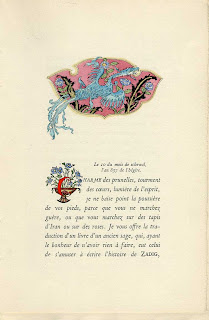 Le 10 du mois de schewal,
l'an 837 de l'hégire.
CHARME des prunelles, tourment
des cœurs, lumière de l'esprit,
je ne baise point la poussière
de vos pieds, parce que vous ne marchez
guère, ou que vous marchez sur des tapis
d'Iran ou sur des roses. Je vous offre la tra-
duction d'un livre d'un ancien sage, qui, ayant
le bonheur de n'avoir rien à faire, eut celui
de s'amuser à écrire l'histoire de ZADIG,